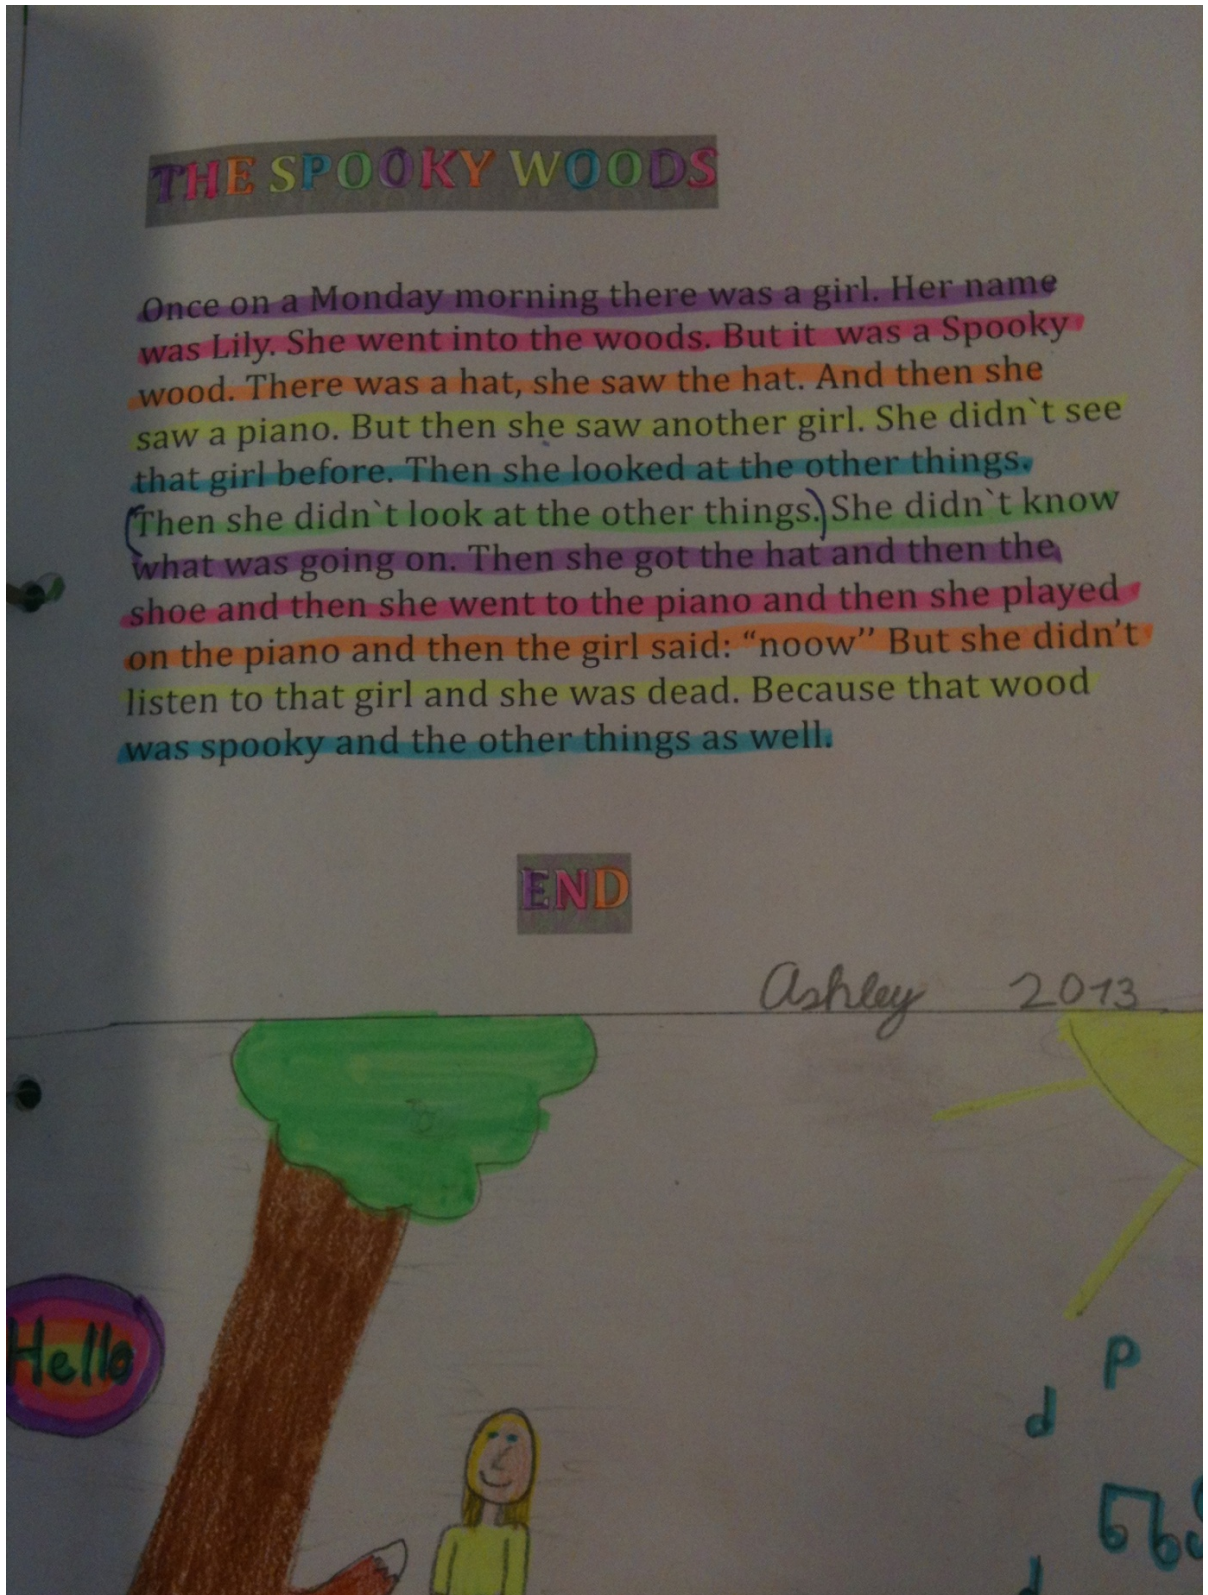 THE SPOOKY WOODS
Once on a Monday morning there was a girl. Her name
was Lily. She went into the woods. But it was a Spooky
wood. There was a hat, she saw the hat. And then she
saw a piano. But then she saw another girl. She didn`t see
that girl before. Then she looked at the other things.
(Then she didn`t look at the other things.) She didn`t know
what was going on. Then she got the hat and then the
shoe and then she went to the piano and then she played
on the piano and then the girl said: “noow” But she didn’t
listen to that girl and she was dead. Because that wood
was spooky and the other things as well.
END
Ashley 2013
Hello